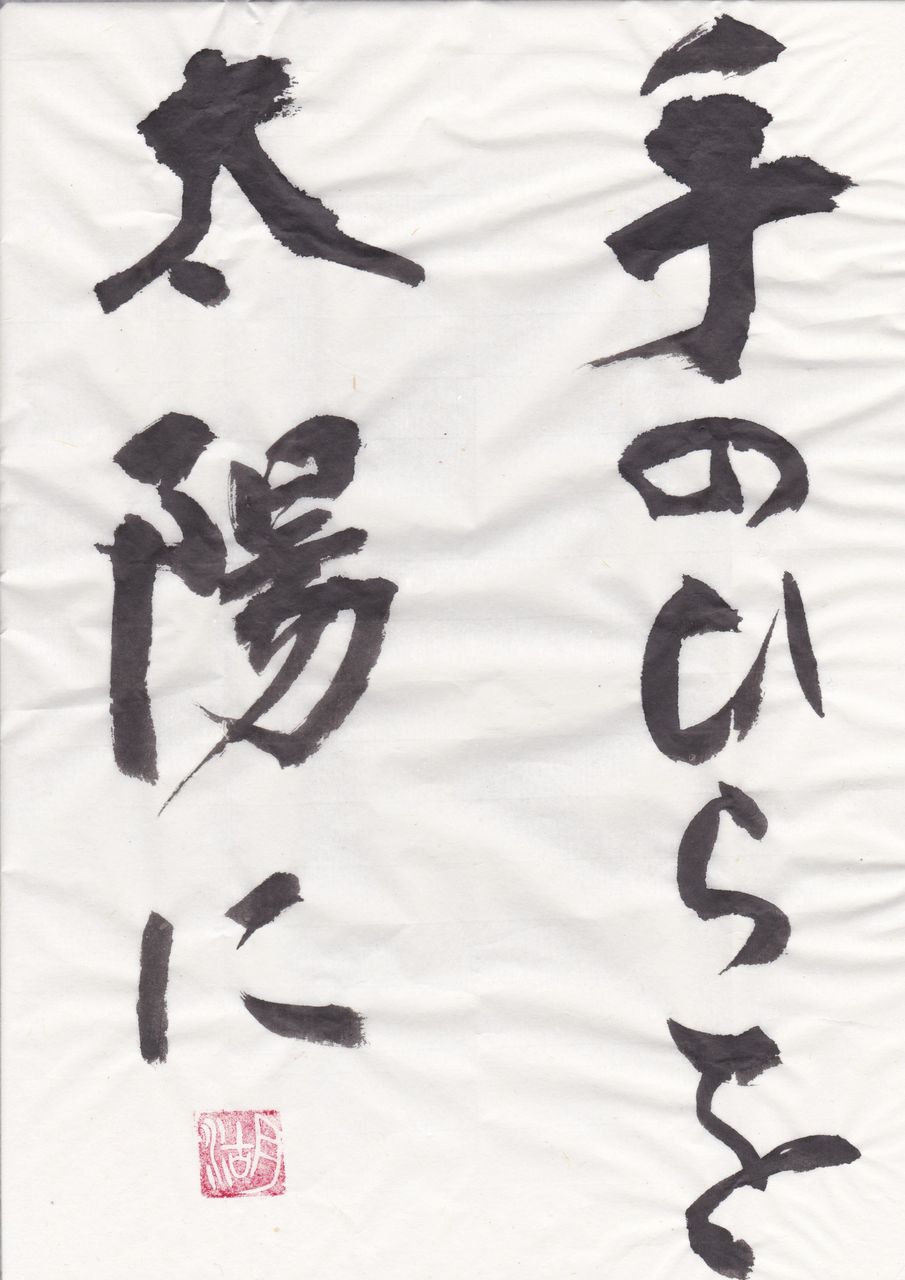 手のひらを
太陽に
湖